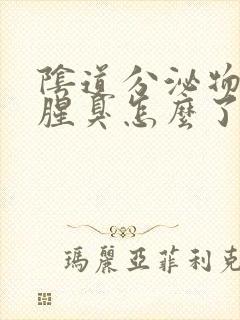 陰道分泌物
腥臭怎麼了
瑪麗亞菲利克